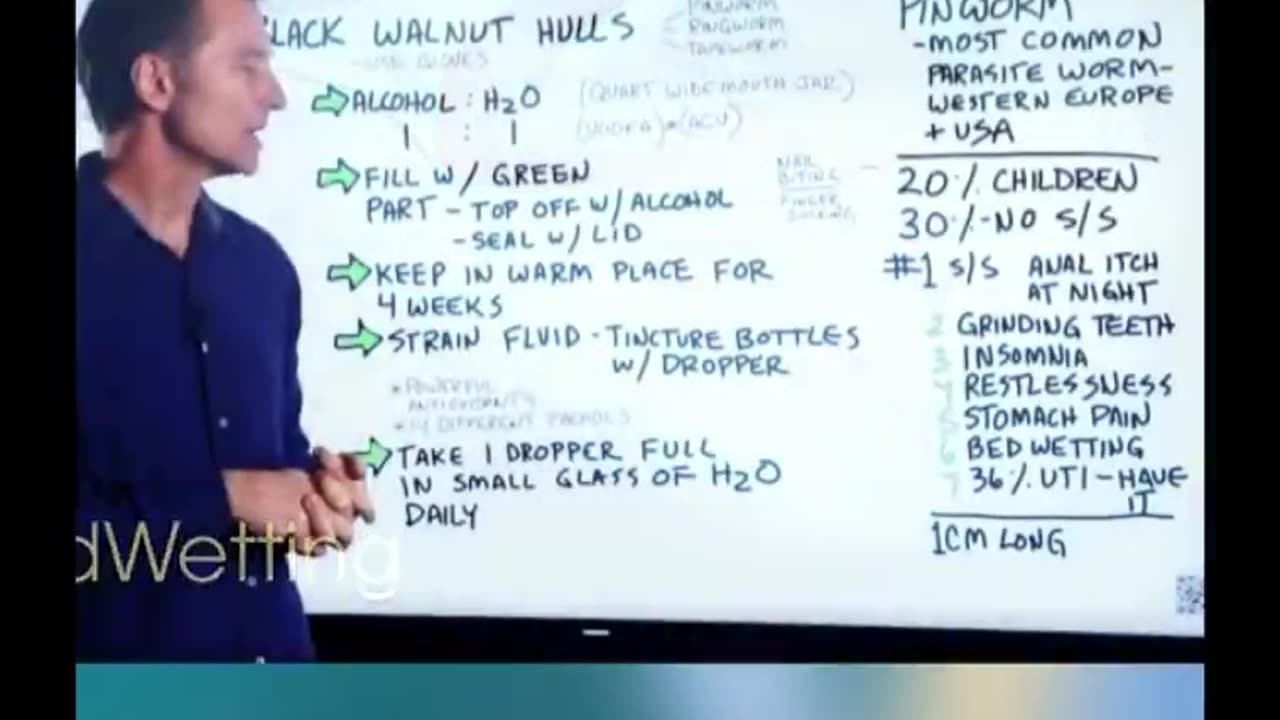 LACK WALNUT HULLS
- USE GLOVES
PINWORM
RINGWORM
TAPEWORM
ALCOHOL : H2O (QUART WIDE MOUTH JAR)
1 : 1 (VODKA) (ACV)
FILL W/ GREEN
PART - TOP OFF W/ ALCOHOL
- SEAL W/ LID
NAIL
BITING
FINGER
SUCKING
KEEP IN WARM PLACE FOR
4 WEEKS
STRAIN FLUID - TINCTURE BOTTLES
W/ DROPPER
* POWERFUL
ANTIOXIDANTS
DIFFERENT
TAKE 1 DROPPER FULL
IN SMALL GLASS OF H2O
DAILY
PINWORM
- MOST COMMON
PARASITE WORM -
WESTERN EUROPE
+ USA
20% CHILDREN
30% - NO S/S
#1 S/S ANAL ITCH
AT NIGHT
2 GRINDING TEETH
3 INSOMNIA
4 RESTLESSNESS
5 STOMACH PAIN
6 BED WETTING
7 36% UTI - HAVE
IT
1CM LONG
dWetting